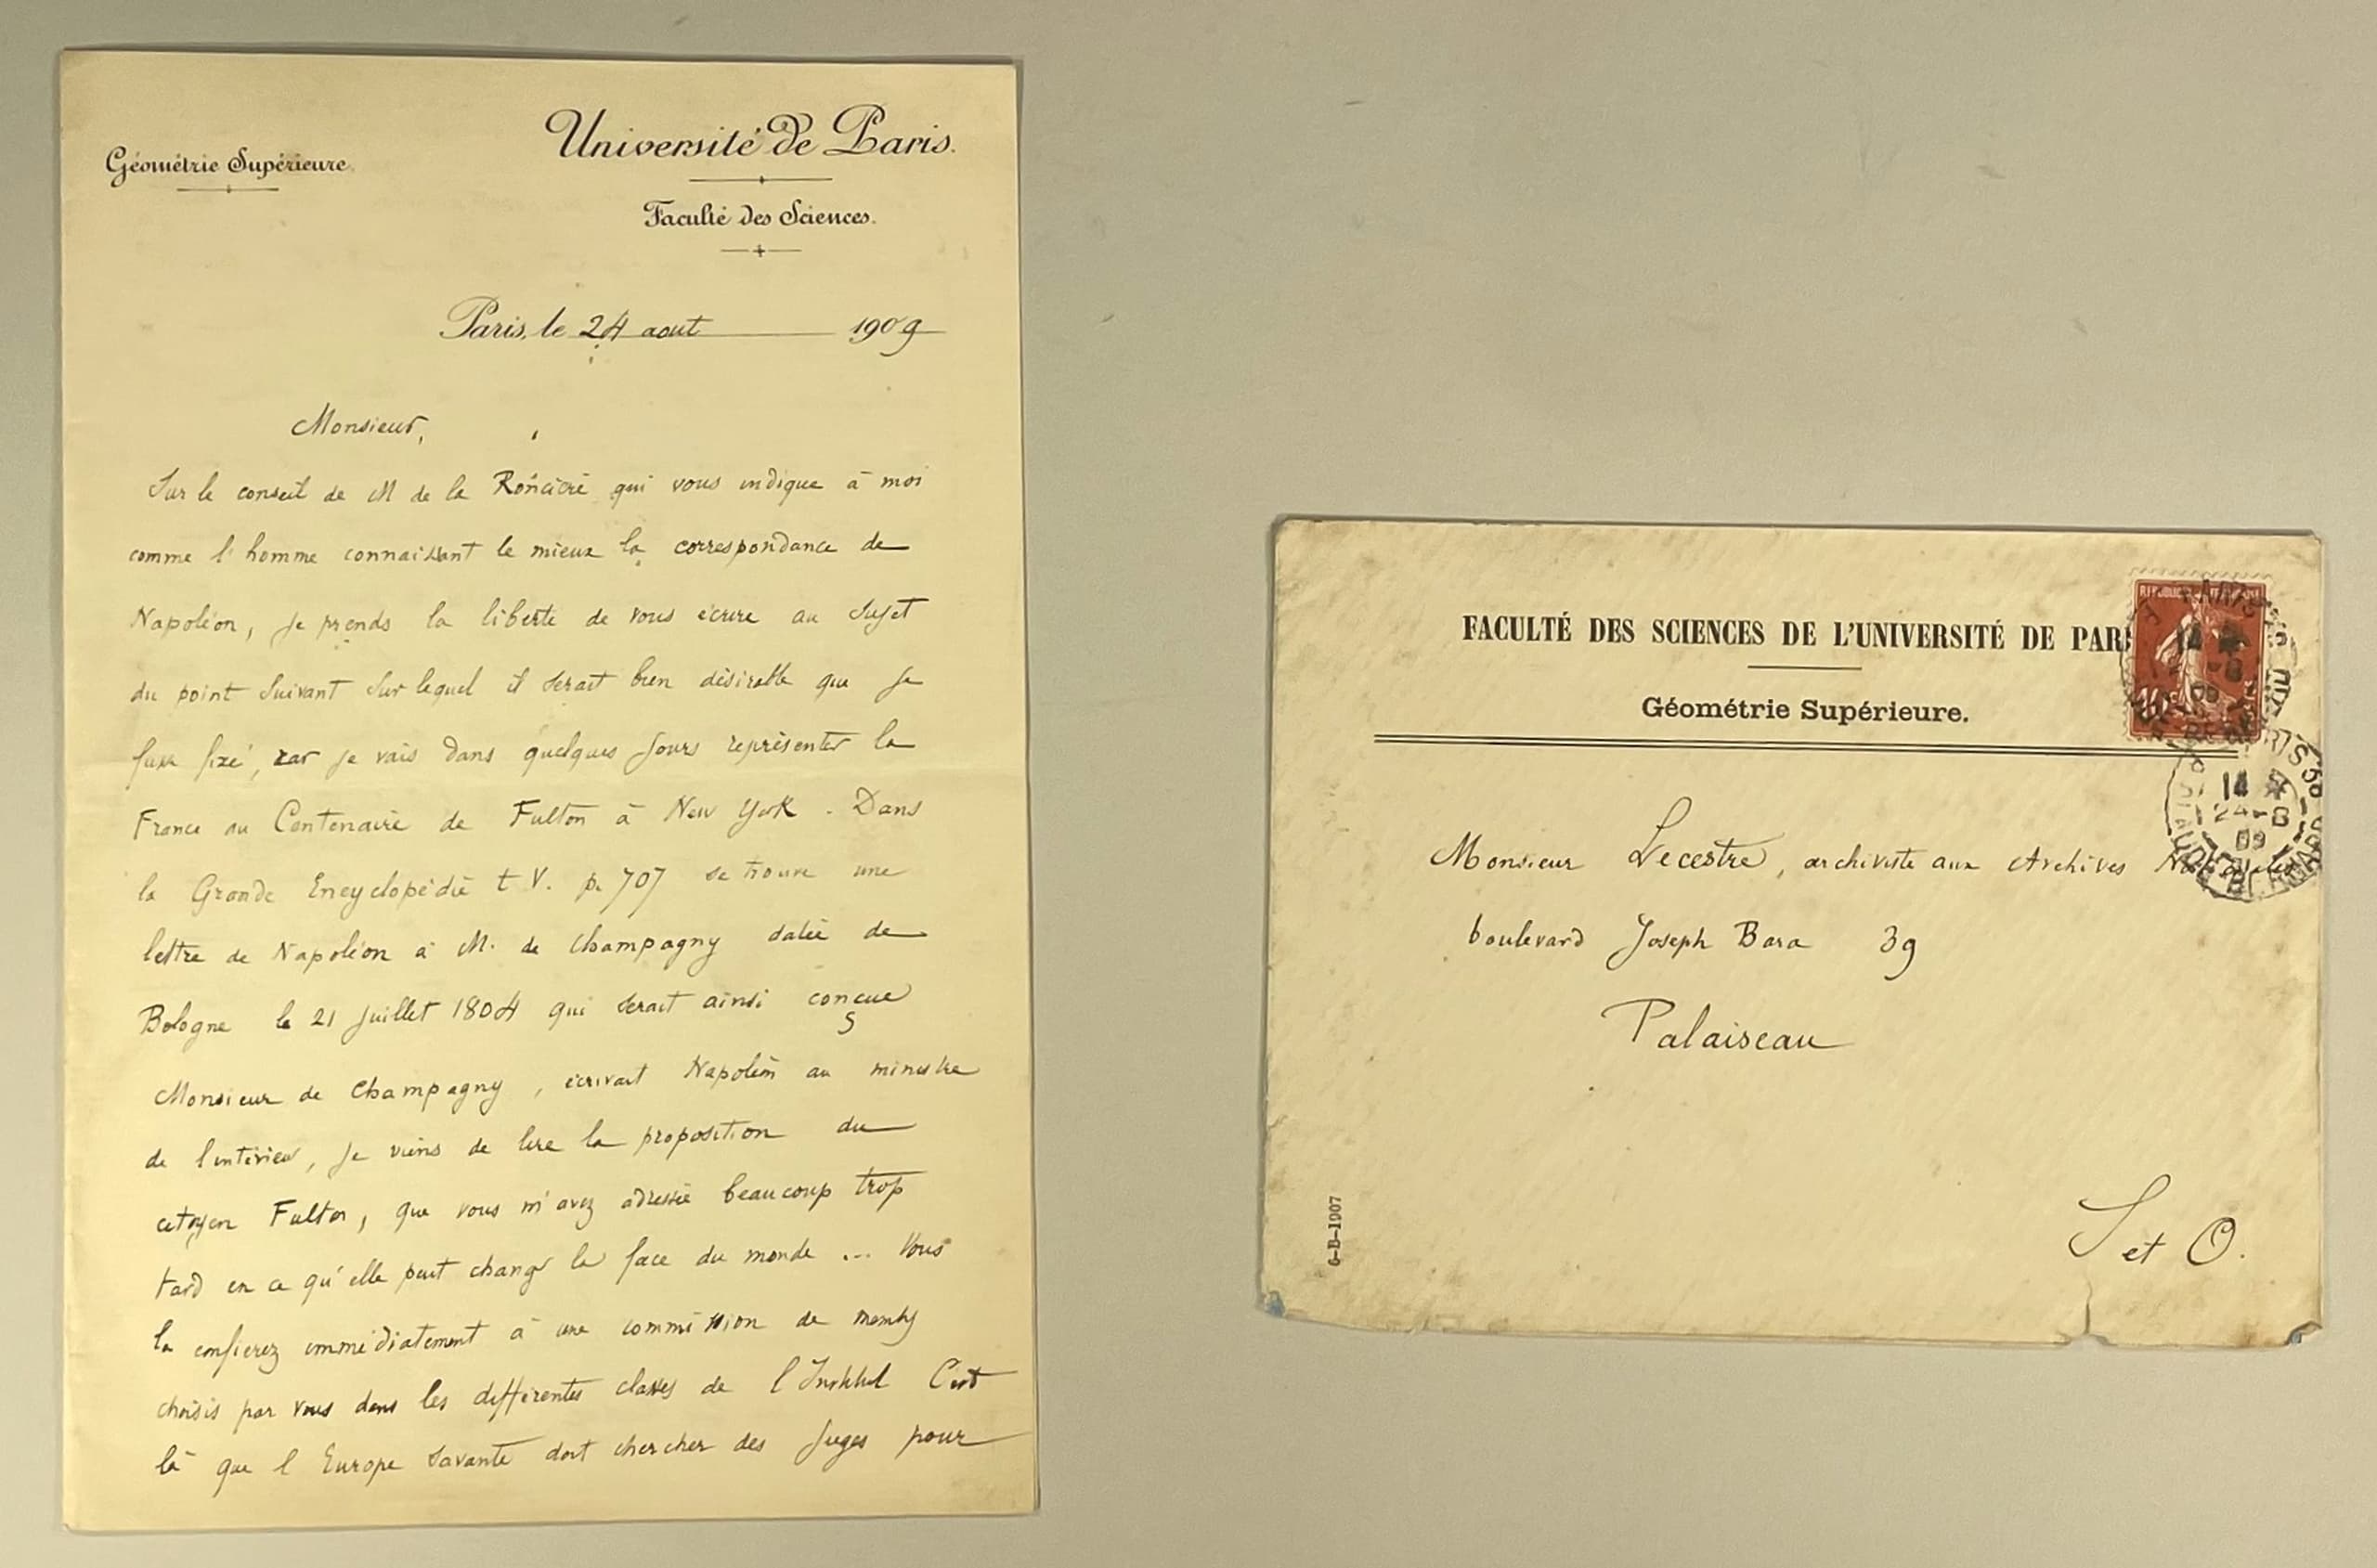 Géométrie Supérieure.
Université de Paris.
Faculté des Sciences.
Paris, le 24 aout 1909
Monsieur,
Sur le conseil de M de la Roncière qui vous indique à moi
comme l'homme connaissant le mieux la correspondance de
Napoléon, je prends la liberté de vous écrire au sujet
du point suivant sur lequel il serait bien désirable que je
fusse fixé, car je vais dans quelques jours représenter la
France au Centenaire de Fulton à New York. Dans
la Grande Encyclopédie t V. p. 707 se trouve une
lettre de Napoléon à M. de Champagny datée de
Bologne le 21 juillet 1804 qui serait ainsi conçue
Monsieur de Champagny, écrivait Napoléon au ministre
de l'intérieur, je viens de lire la proposition du
citoyen Fulton, que vous m'avez adressée beaucoup trop
tard en ce qu'elle peut changer la face du monde ... Vous
la confierez immédiatement à une commission de membres
choisis par vous dans les différentes classes de l'Institut C'est
là que l'Europe savante doit chercher des juges pour
FACULTÉ DES SCIENCES DE L'UNIVERSITÉ DE PARI
Géométrie Supérieure.
Monsieur Lecestre, archiviste aux Archives Nationales
boulevard Joseph Bara 39
Palaiseau
S et O.
6-B-1907
14
24-8
09